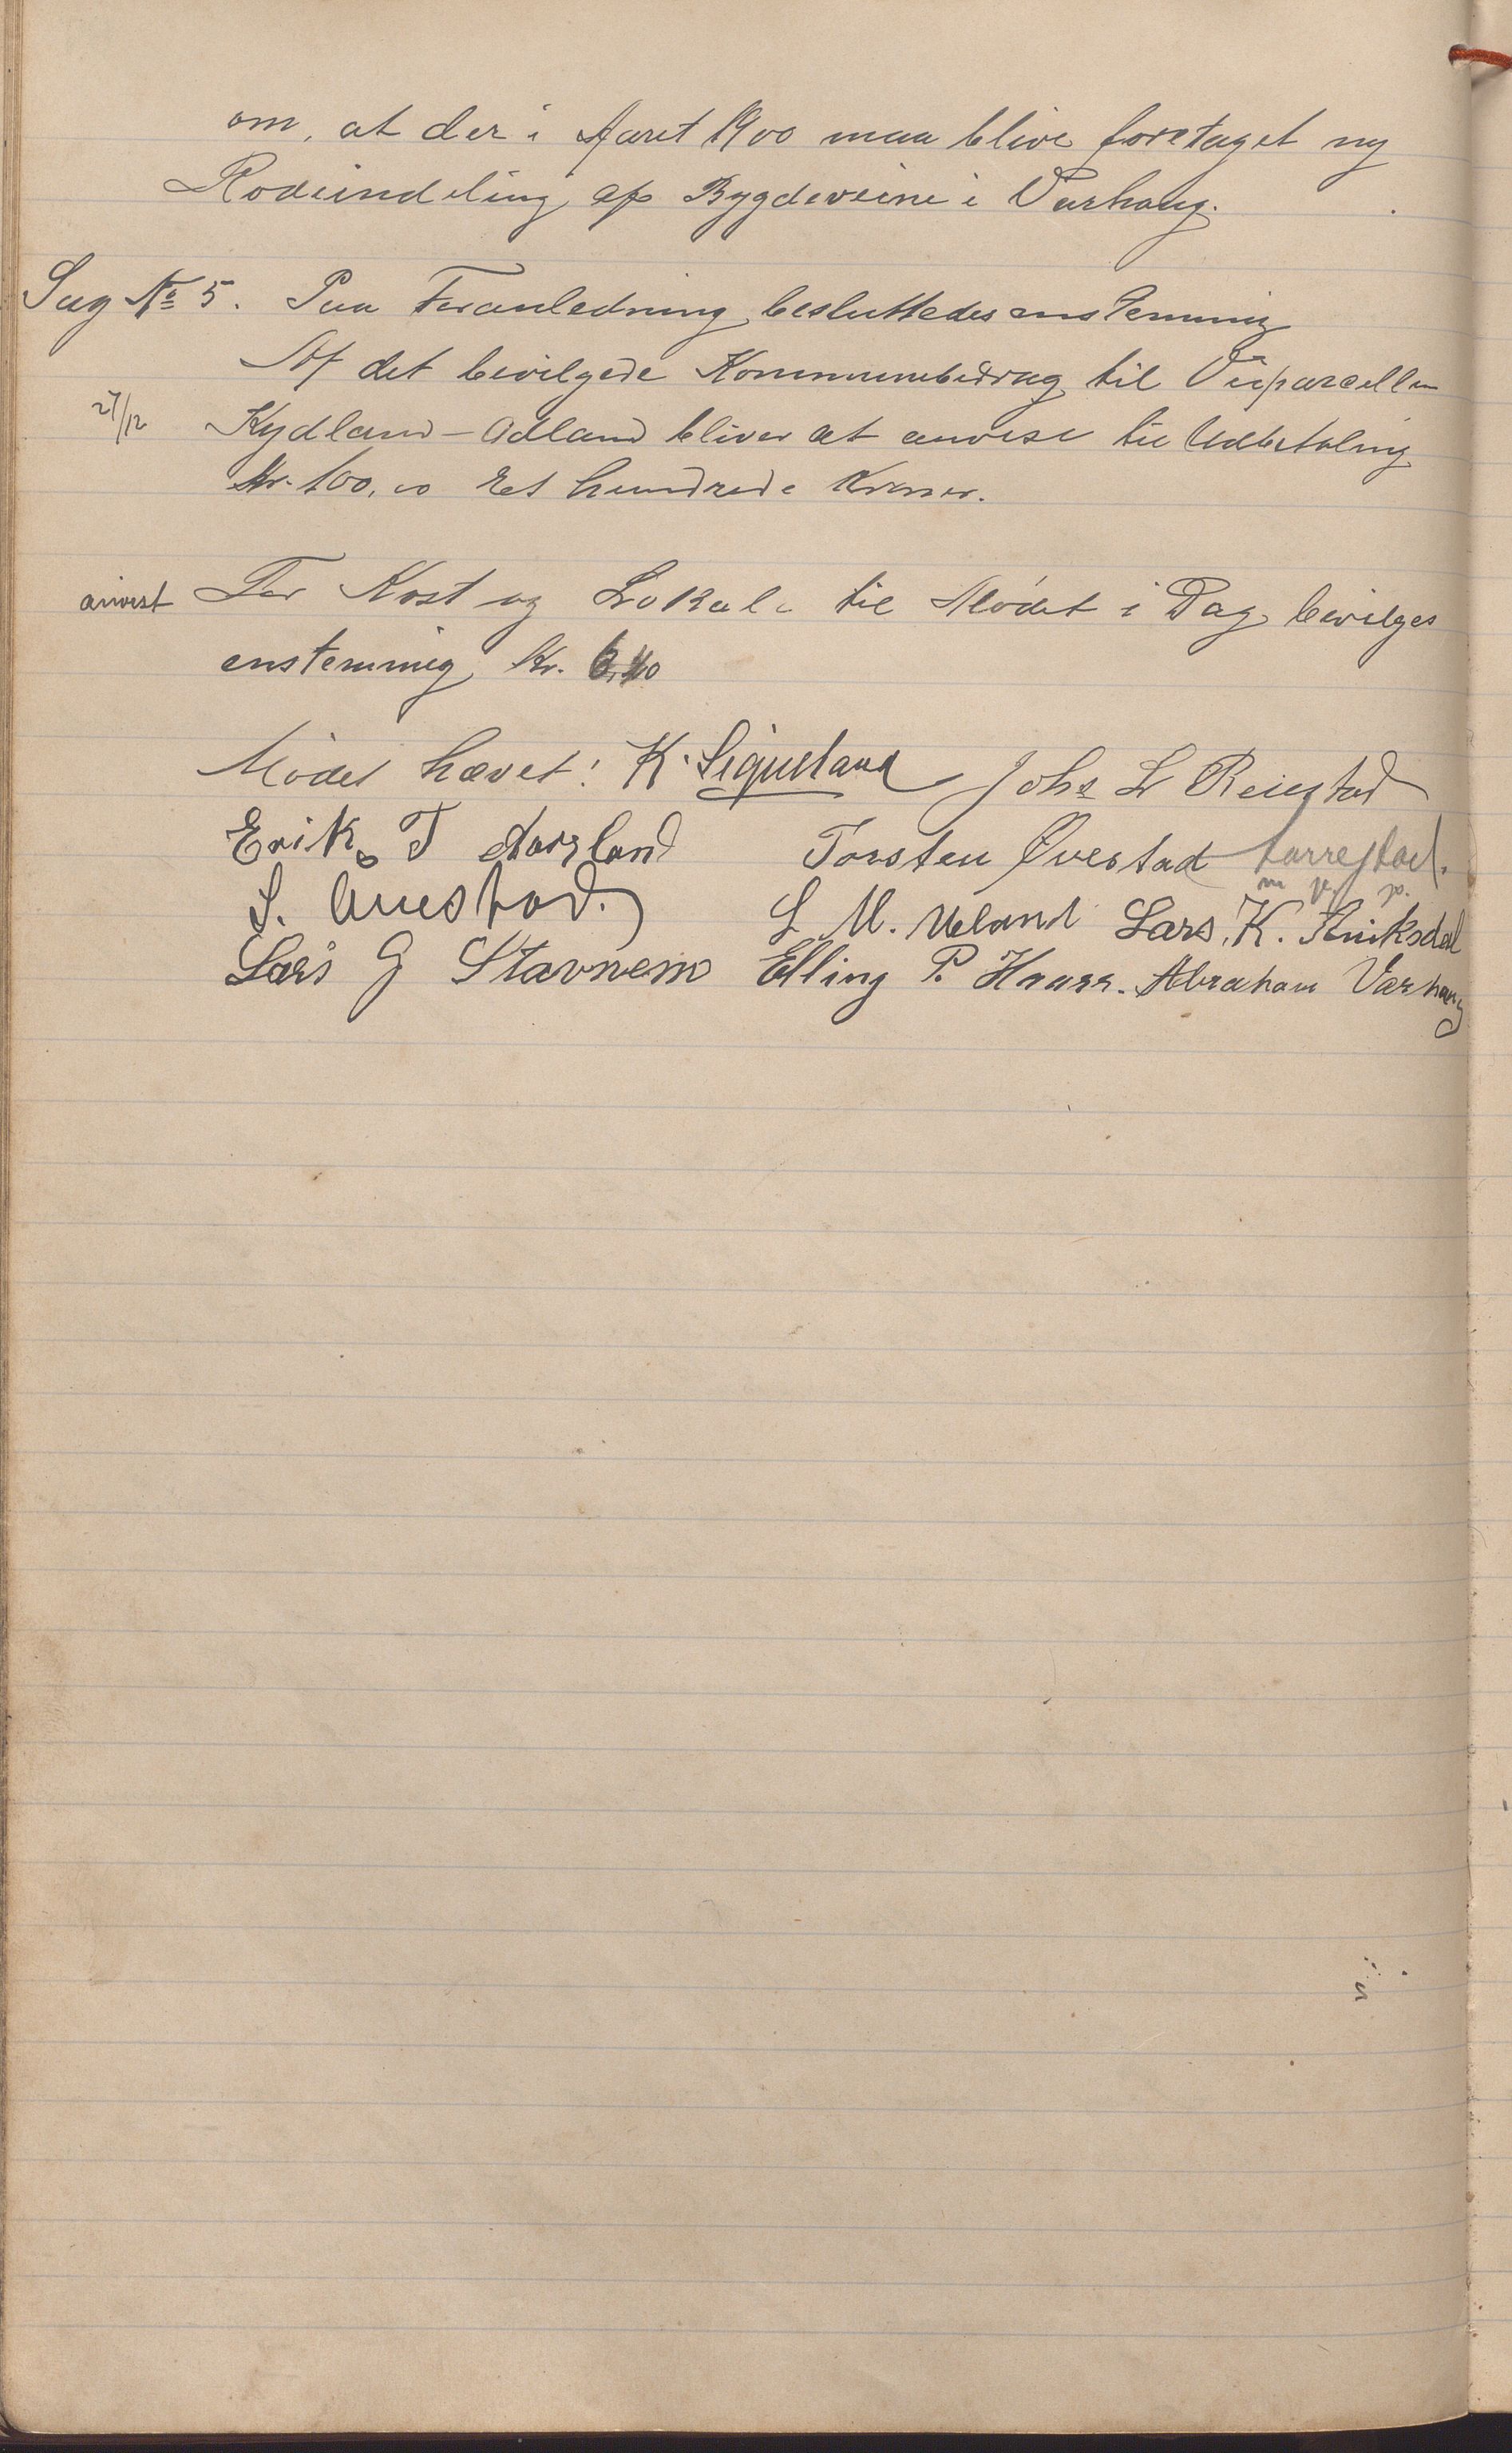 om, at der i Aaret 1900 maa blive foretaget ny
Rodeindeling af Bygdeveine i Varhaug.
Sag No 5. Paa Foranledning besluttedes enstemmig
Af det bevilgede Kommunebidrag til Veiparcellen
27/12 Kydland-Adland bliver at anvise til Udbetaling
Kr. 100,00 Et hundrede Kroner.
anvist For Kost og Lokale til Mødet i Dag bevilges
enstemmig Kr. 6,40
Mødet hævet! K. Sigueland Johs L Reiestad
Erik T Aarsland Torsten Øvestad Torrestad.
S. Auestad. L M. Ueland Lars. K. Aniksdal
Lars G Stavnem Elling P. Haarr. Abraham Varhaug